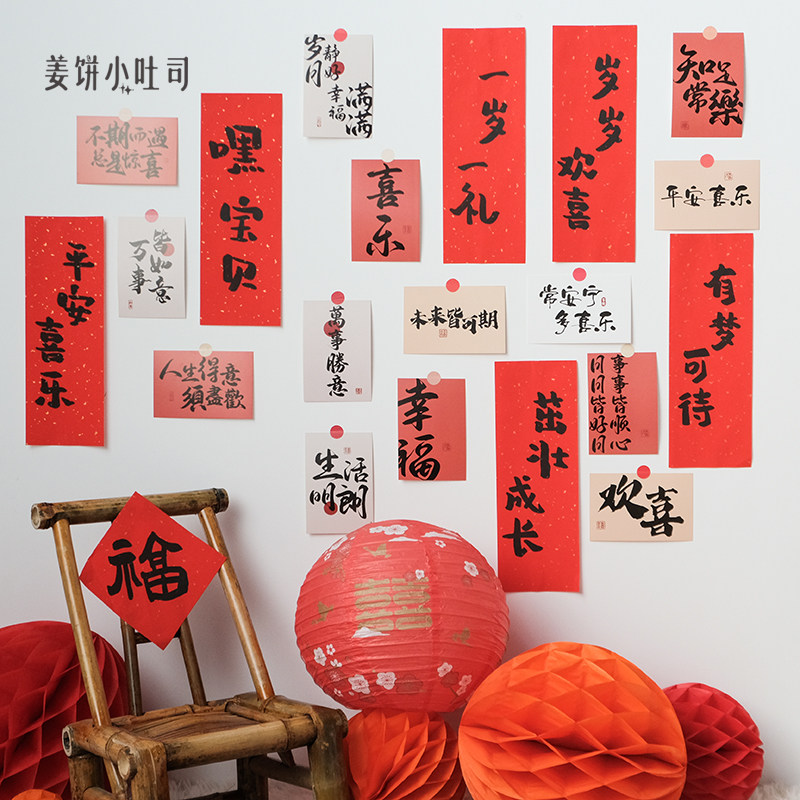 姜饼小吐司
不期而遇
总是惊喜
嘿宝贝
静好
岁月
幸福
满满
一岁一礼
岁岁欢喜
知足
常樂
平安喜乐
皆如意
万事
喜乐
平安喜乐
萬事勝意
未来皆可期
常安宁
多喜乐
有梦可待
人生得意
須盡歡
幸福
茁壮成长
事事皆顺心
日日皆好日
生活
明朗
欢喜
福
囍